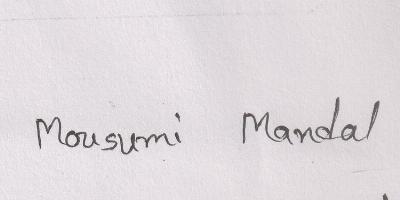 Mousumi Mandal